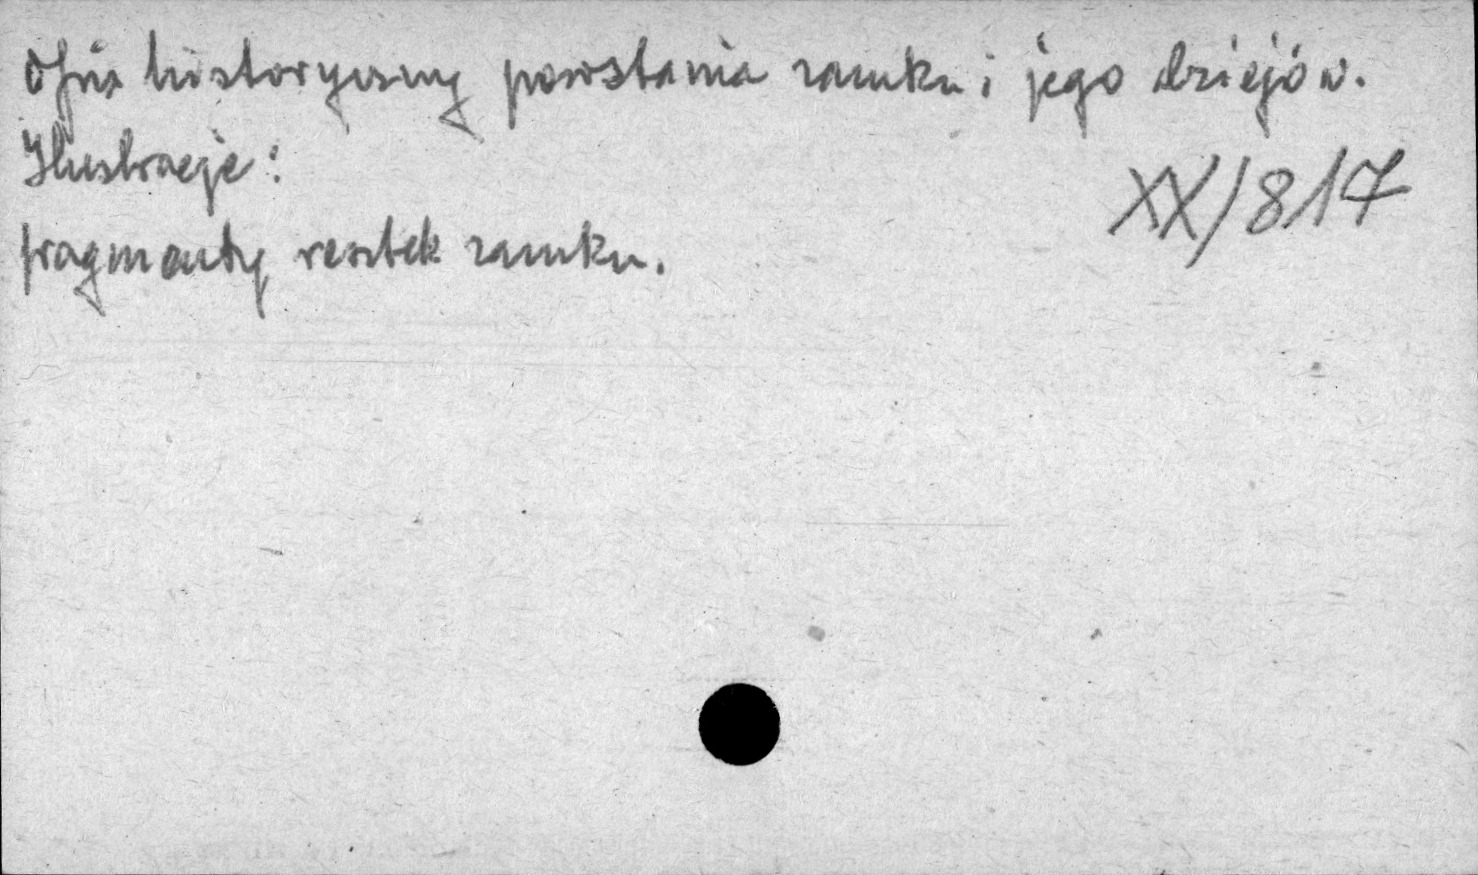 Opis historyczny powstania zamku i jego dziejów.
Ilustracje:
XX/817
fragmenty resztek zamku.